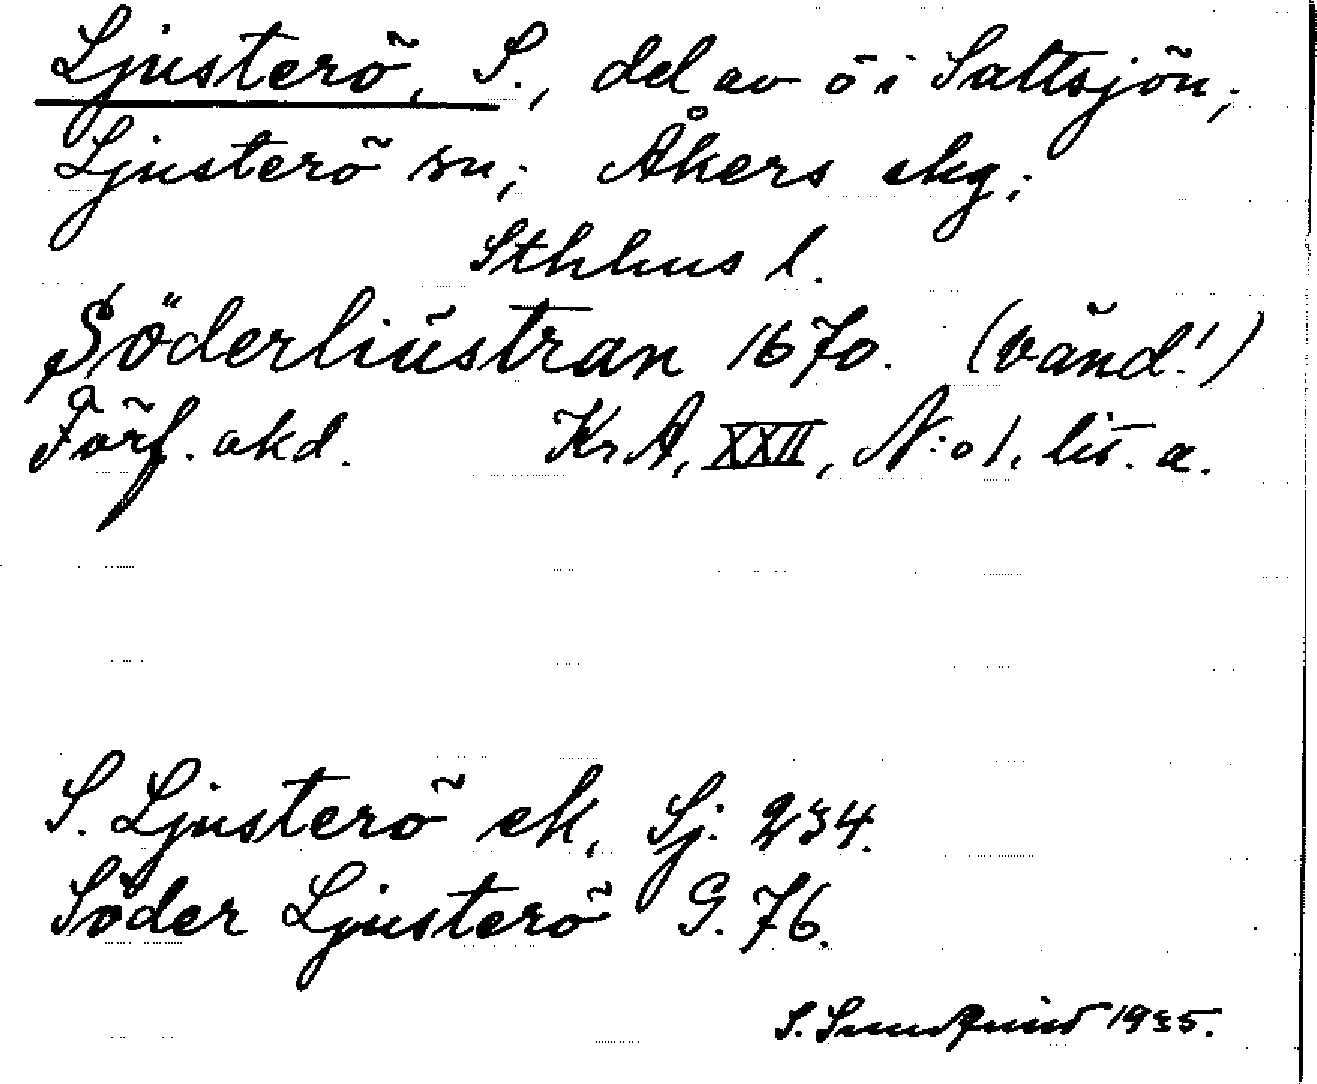 Ljusterö, S., del av ö i Saltsjön;
Ljusterö sn; Åkers skg;
Sthlms l.
Söderliüstran 1670. (vänd!)
Förf. okd. KrA, XXII, N:o 1, lit. a.
S. Ljusterö ek, Sj. 234.
Söder Ljusterö G. 76.
S. Sundquist 1935.